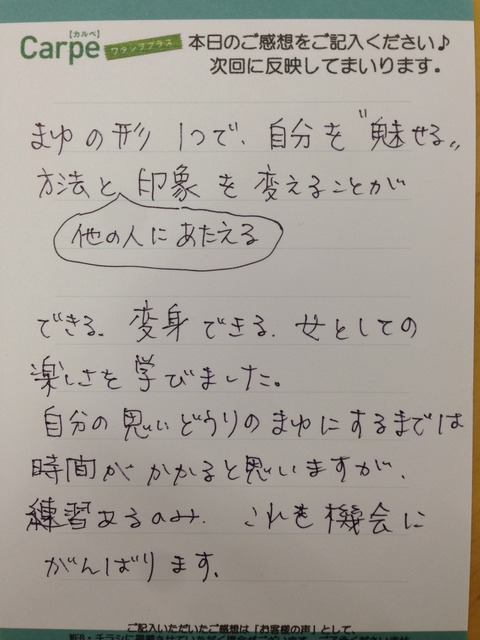 【カルペ】
Carpe
ワランサプラス
本日のご感想をご記入ください♪
次回に反映してまいります。
まゆの形 1つで、自分を〝魅せる〟
方法と 印象 を 変えることが
他の人にあたえる
できる。変身できる。女としての
楽しさを 学びました。
自分の思いどうりのまゆにするまでは
時間がかかると思いますが、
練習あるのみ. これを機会に
がんばります。
ご記入いただいたご感想は「お客様の声」として、